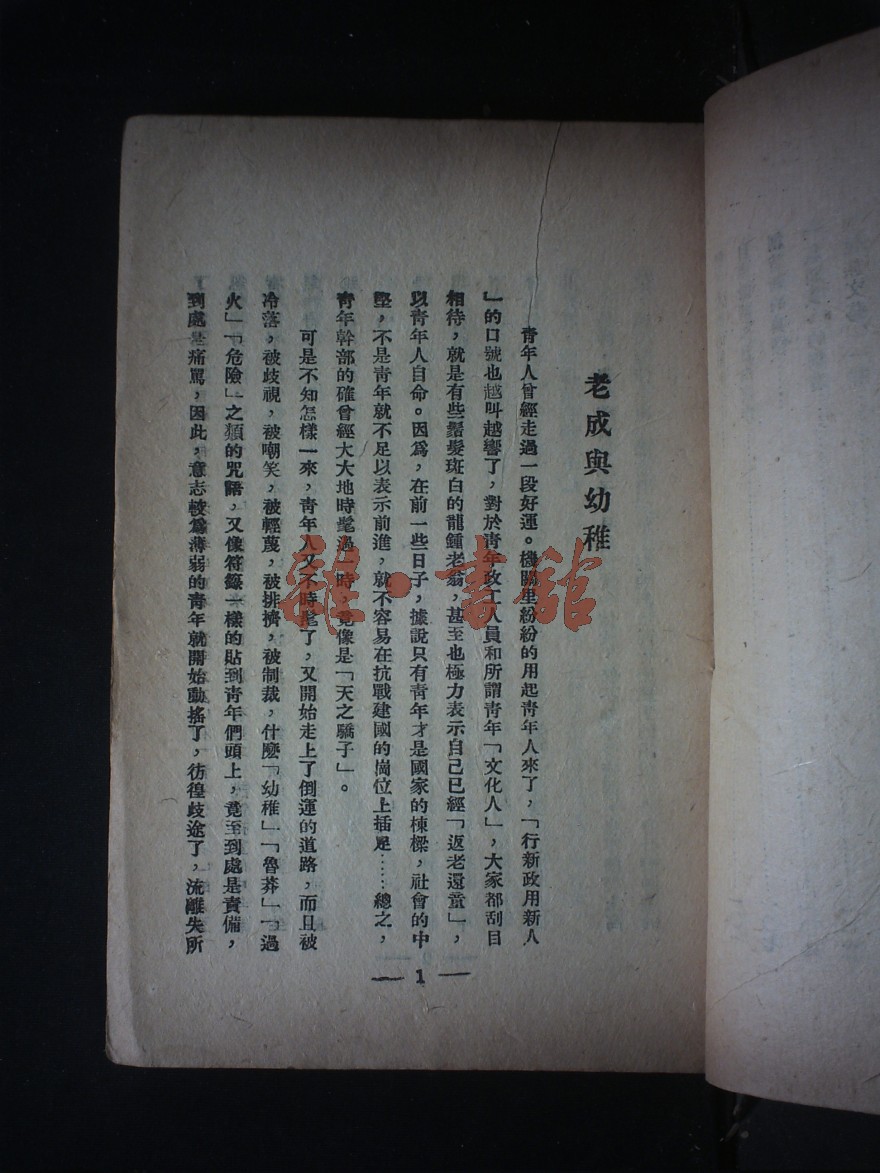 老成與幼稚
青年人曾經走過一段好運。機關里紛紛的用起青年人來了，「行新政用新人
」的口號也越叫越響了，對於青年政工人員和所謂青年「文化人」，大家都刮目
相待，就是有些鬚髮斑白的龍鍾老翁，甚至也極力表示自己已經「返老還童」，
以青年人自命。因爲，在前一些日子，據說只有青年才是國家的棟樑，社會的中
堅，不是青年就不足以表示前進，就不容易在抗戰建國的崗位上插足……總之，
青年幹部的確曾經大大地時髦過一時，竟像是「天之驕子」。
可是不知怎樣一來，青年人又不時髦了，又開始走上了倒運的道路，而且被
冷落，被歧視，被嘲笑，被輕蔑，被排擠，被制裁，什麽「幼稚」「魯莽」「過
火」「危險」之類的咒語，又像符籙一樣的貼到青年們頭上，竟至到處是責備，
到處是痛罵，因此，意志較爲薄弱的青年就開始動搖了，彷徨歧途了，流離失所
— 1 —
雜·書館